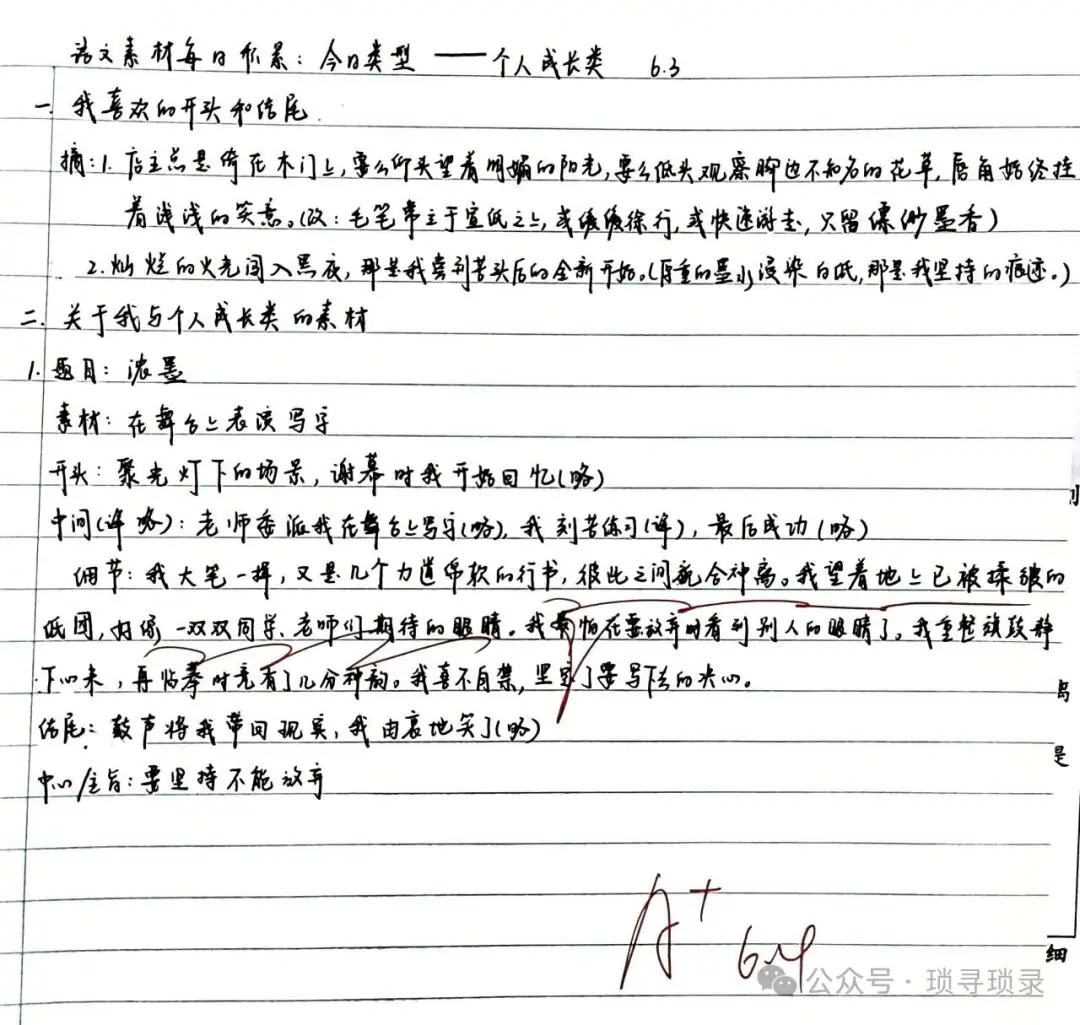 语文素材每日积累：今日类型 ——个人成长类 6.3
一、我喜欢的开头和结尾
摘：1. 店主总是倚在木门上，要么仰头望着明媚的阳光，要么低头观察脚边不知名的花草，唇角始终挂
着浅浅的笑意。(改：毛笔常立于宣纸之上，或缓缓徐行，或快速游走，只留缥缈墨香)
2. 灿烂的火光闯入黑夜，那是我尝到苦头后的全新开始。(厚重的墨水浸染白纸，那是我坚持的痕迹。)
二、关于我与个人成长类的素材
1. 题目：浓墨
素材：在舞台上表演写字
开头：聚光灯下的场景，谢幕时我开始回忆(略)
中间(详略)：老师委派我在舞台上写字(略)，我刻苦练习(详)，最后成功(略)
细节：我大笔一挥，又是几个力道绵软的行书，彼此之间貌合神离。我望着地上已被揉皱的
纸团，好像一双双同学、老师们期待的眼睛。我害怕在要放弃时看到别人的眼睛了。我重整旗鼓静
下心来，再临摹时竟有了几分神韵。我喜不自禁，坚定了要写下去的决心。
结尾：鼓声将我带回现实，我由衷地笑了(略)
中心/主旨：要坚持不能放弃
A+ 6.4
刂
岛
是
细
公众号·琐寻琐录